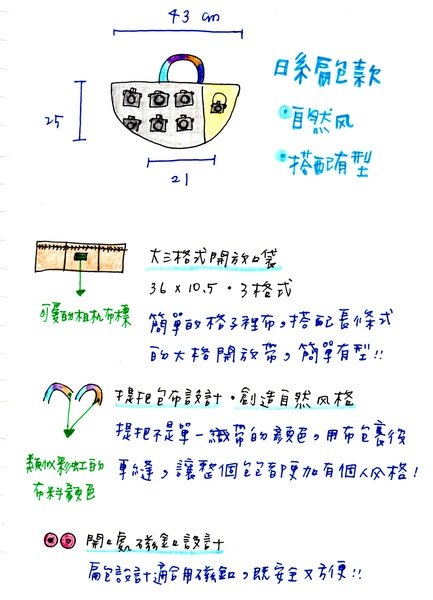 43 cm
日系扁包款
自然风
25
搭配有型
21
大三格式開放口袋
36 x 10.5 · 3格式
可愛的相机布標
簡單的格子裡布,搭配長條式
的大格開放帶,簡單有型!!
提把包布設計·創造自然风格
提把不是單一織帶的顏色,用布包裹後
類似彩虹的
車縫,讓整個包包都更加有個人风格!
布料顏色
開口處磁釦設計
扁包設計適合用磁釦,既安全又方便!!